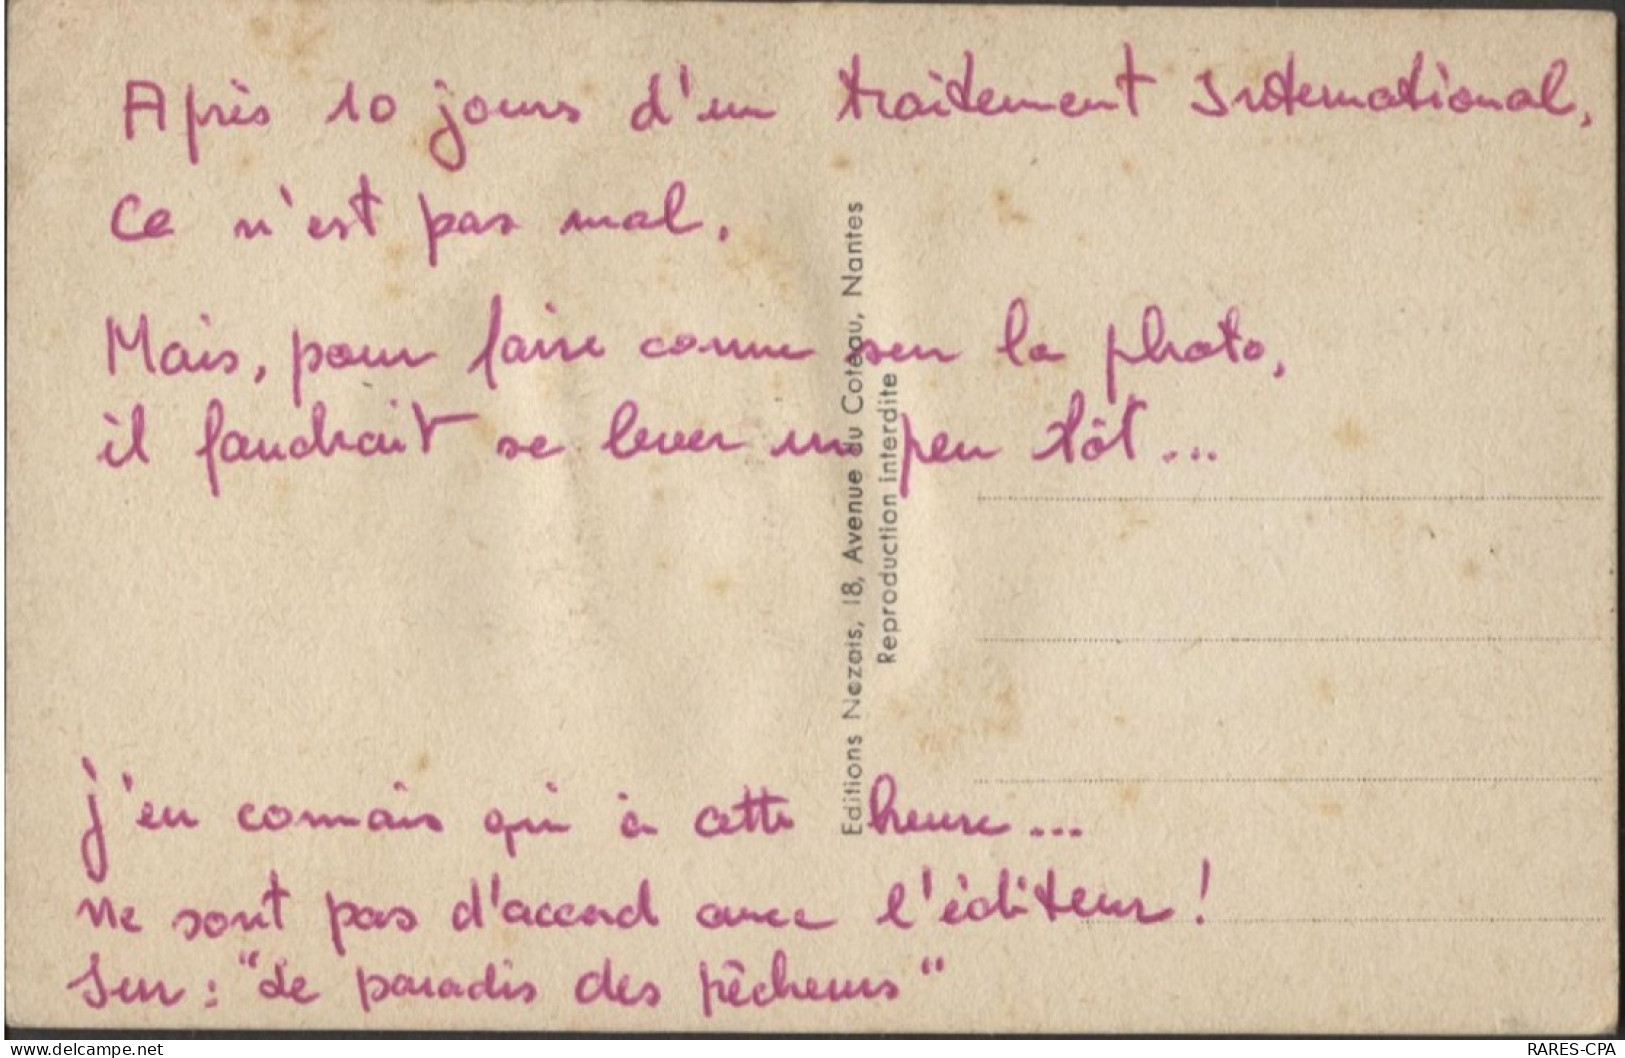 Après 10 jours d'un traitement International,
Ce n'est pas mal.
Mais, pour faire comme sur la photo,
il faudrait se lever un peu tôt...
J'en connais qui à cette heure...
ne sont pas d'accord avec l'éditeur!
Sur : "Le paradis des pêcheurs"
Editions Nozais, 18, Avenue du Coteau, Nantes
Reproduction interdite
www.delcampe.net
RARES-CPA